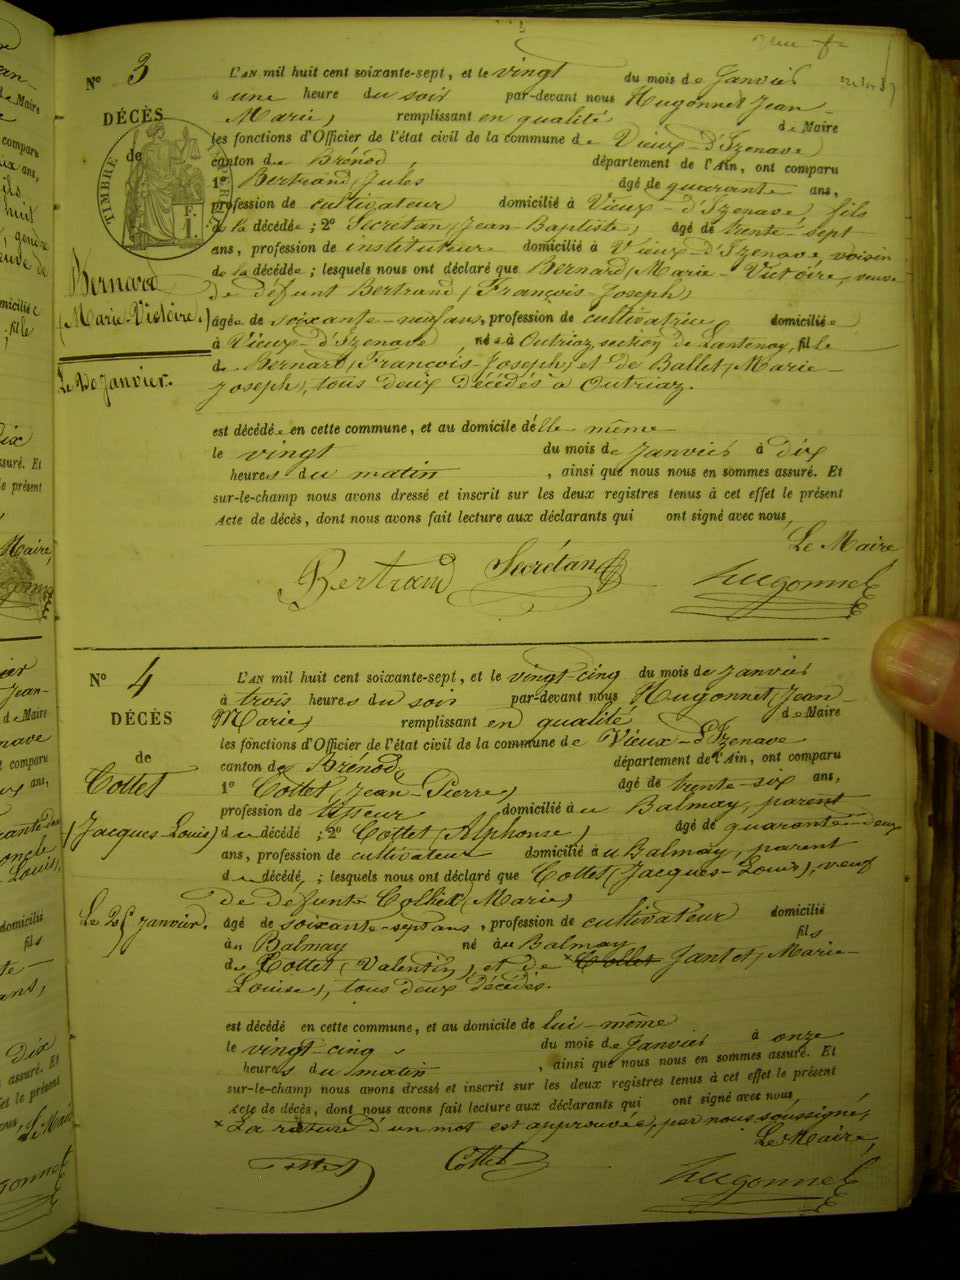 N° 3
DÉCÈS
de
TIMBRE
F.
1.
Bernard
(Marie-Victoire.)
Le 20 janvier.
L'AN mil huit cent soixante-sept, et le vingt du mois de Janvier
à une heure du soir par-devant nous Hugonnet Jean
Marie, remplissant en qualité de Maire
les fonctions d'Officier de l'état civil de la commune de Vieux-d'Izenave
canton de Brénod, département de l'Ain, ont comparu
1° Bertrand, Jules âgé de quarante ans,
profession de cultivateur domicilié à Vieux-d'Izenave, fils
de la décédée ; 2° Secrétan, Jean-Baptiste, âgé de trente-sept
ans, profession de instituteur domicilié à Vieux-d'Izenave, voisin
de la décédée ; lesquels nous ont déclaré que Bernard, Marie-Victoire, veuve
de défunt Bertrand, (François-Joseph)
âgée de soixante-neuf ans, profession de cultivatrice, domiciliée
à Vieux-d'Izenave, née à Outriaz, section de Lantenay, fille
de Bernard, François-Joseph, et de Ballet, Marie-
Joseph, tous deux décédés à Outriaz.
est décédée en cette commune, et au domicile d'elle-même
le vingt du mois de Janvier à dix
heures du matin, ainsi que nous nous en sommes assuré. Et
sur-le-champ nous avons dressé et inscrit sur les deux registres tenus à cet effet le présent
acte de décès, dont nous avons fait lecture aux déclarants qui ont signé avec nous,
Le Maire
Bertrand Secrétan Hugonnet
N° 4
DÉCÈS
de
Cottet
(Jacques-Louis)
Le 25 janvier.
L'AN mil huit cent soixante-sept, et le vingt-cinq du mois de Janvier
à trois heures du soir par-devant nous Hugonnet, Jean
Marie, remplissant en qualité de Maire
les fonctions d'Officier de l'état civil de la commune de Vieux-d'Izenave
canton de Brénod, département de l'Ain, ont comparu
1° Cottet, Jean-Pierre, âgé de trente-six ans,
profession de tisseur domicilié au Balmay, parent
du décédé ; 2° Cottet, (Alphonse) âgé de quarante-deux
ans, profession de cultivateur domicilié au Balmay, parent
du décédé ; lesquels nous ont déclaré que Cottet, (Jacques-Louis), veuf
de défunte (Marie)
âgé de soixante-sept ans, profession de cultivateur domicilié
au Balmay né au Balmay fils
de Cottet, (Valentin), et de × Cottet Jantet, Marie-
Louise), tous deux décédés.
est décédé en cette commune, et au domicile de lui-même
le vingt-cinq du mois de Janvier à onze
heures du matin, ainsi que nous nous en sommes assuré. Et
sur-le-champ nous avons dressé et inscrit sur les deux registres tenus à cet effet le présent
acte de décès, dont nous avons fait lecture aux déclarants qui ont signé avec nous
× La rature d'un mot est approuvée, par nous soussigné,
Le Maire,
Cottet Cottet Hugonnet